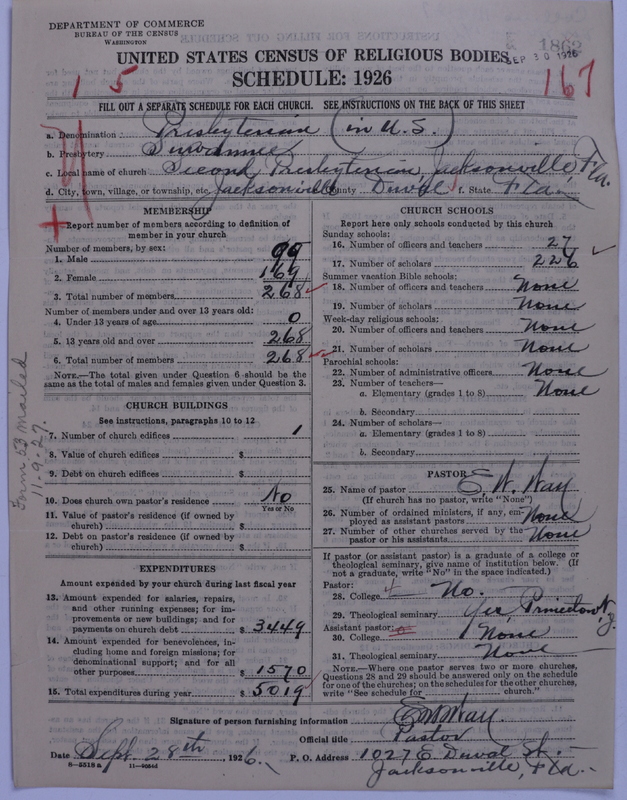 DEPARTMENT OF COMMERCE
BUREAU OF THE CENSUS
WASHINGTON
1862
UNITED STATES CENSUS OF RELIGIOUS BODIES
SEP 30 1926
SCHEDULE: 1926
1 5
167
FILL OUT A SEPARATE SCHEDULE FOR EACH CHURCH. SEE INSTRUCTIONS ON THE BACK OF THIS SHEET
a. Denomination Presbyterian (in U.S.)
b. Presbytery Suwannee
c. Local name of church Second Presbyterian, Jacksonville, Fla.
d. City, town, village, or township, etc. Jacksonville County Duval f. State Fla.
MEMBERSHIP
Report number of members according to definition of
member in your church
Number of members, by sex:
1. Male 99
2. Female 169
3. Total number of members 268
Number of members under and over 13 years old:
4. Under 13 years of age 0
5. 13 years old and over 268
6. Total number of members 268
NOTE.—The total given under Question 6 should be the
same as the total of males and females given under Question 3.
CHURCH BUILDINGS
See instructions, paragraphs 10 to 12
7. Number of church edifices 1
8. Value of church edifices $
9. Debt on church edifices $
10. Does church own pastor's residence No
Yes or No
11. Value of pastor's residence (if owned by
church) $
12. Debt on pastor's residence (if owned by
church) $
EXPENDITURES
Amount expended by your church during last fiscal year
13. Amount expended for salaries, repairs,
and other running expenses; for im-
provements or new buildings; and for
payments on church debt $ 3449
14. Amount expended for benevolences, in-
cluding home and foreign missions; for
denominational support; and for all
other purposes $ 1570
15. Total expenditures during year $ 5019
Form 53 Mailed
11-9-27.
CHURCH SCHOOLS
Report here only schools conducted by this church
Sunday schools:
16. Number of officers and teachers 27
17. Number of scholars 226
Summer vacation Bible schools:
18. Number of officers and teachers None
19. Number of scholars None
Week-day religious schools:
20. Number of officers and teachers None
21. Number of scholars None
Parochial schools:
22. Number of administrative officers None
23. Number of teachers—
a. Elementary (grades 1 to 8) None
b. Secondary
24. Number of scholars—
a. Elementary (grades 1 to 8)
b. Secondary
PASTOR
25. Name of pastor E. W. Way
(If church has no pastor, write "None")
26. Number of ordained ministers, if any, em-
ployed as assistant pastors None
27. Number of other churches served by the
pastor or his assistants None
If pastor (or assistant pastor) is a graduate of a college or
theological seminary, give name of institution below. (If
not a graduate, write "No" in the space indicated.)
Pastor:
28. College No.
29. Theological seminary Yes, Princeton N.J.
Assistant pastor:
30. College None
31. Theological seminary None
NOTE.—Where one pastor serves two or more churches,
Questions 28 and 29 should be answered only on the schedule
for one of the churches; on the schedules for the other churches,
write "See schedule for church."
Signature of person furnishing information E W Way
Official title Pastor
Date Sept. 28th, 1926. P. O. Address 1027 E Duval St.
8-5518 a 11-9054d Jacksonville, Fla.